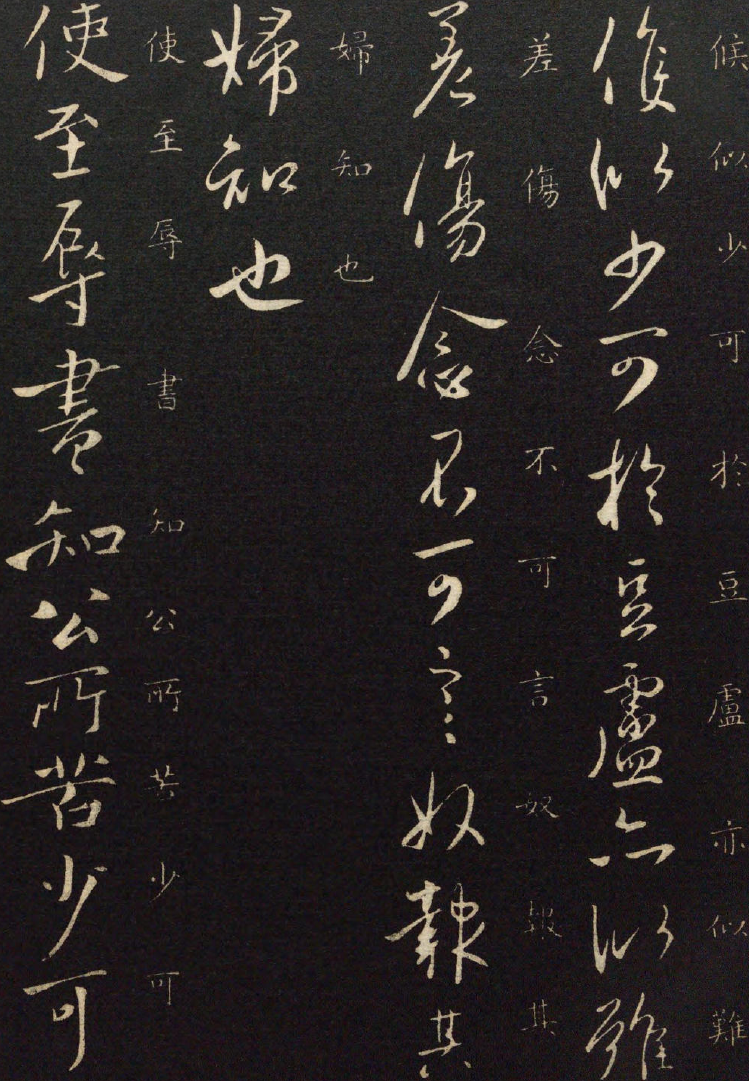 候似少可於豆盧亦似難
候似少可於豆盧亦似難
差傷念不可言奴報其
差傷念不可言〻奴報其
婦知也
婦知也
使至辱書知公所苦少可
使至辱書知公所苦少可